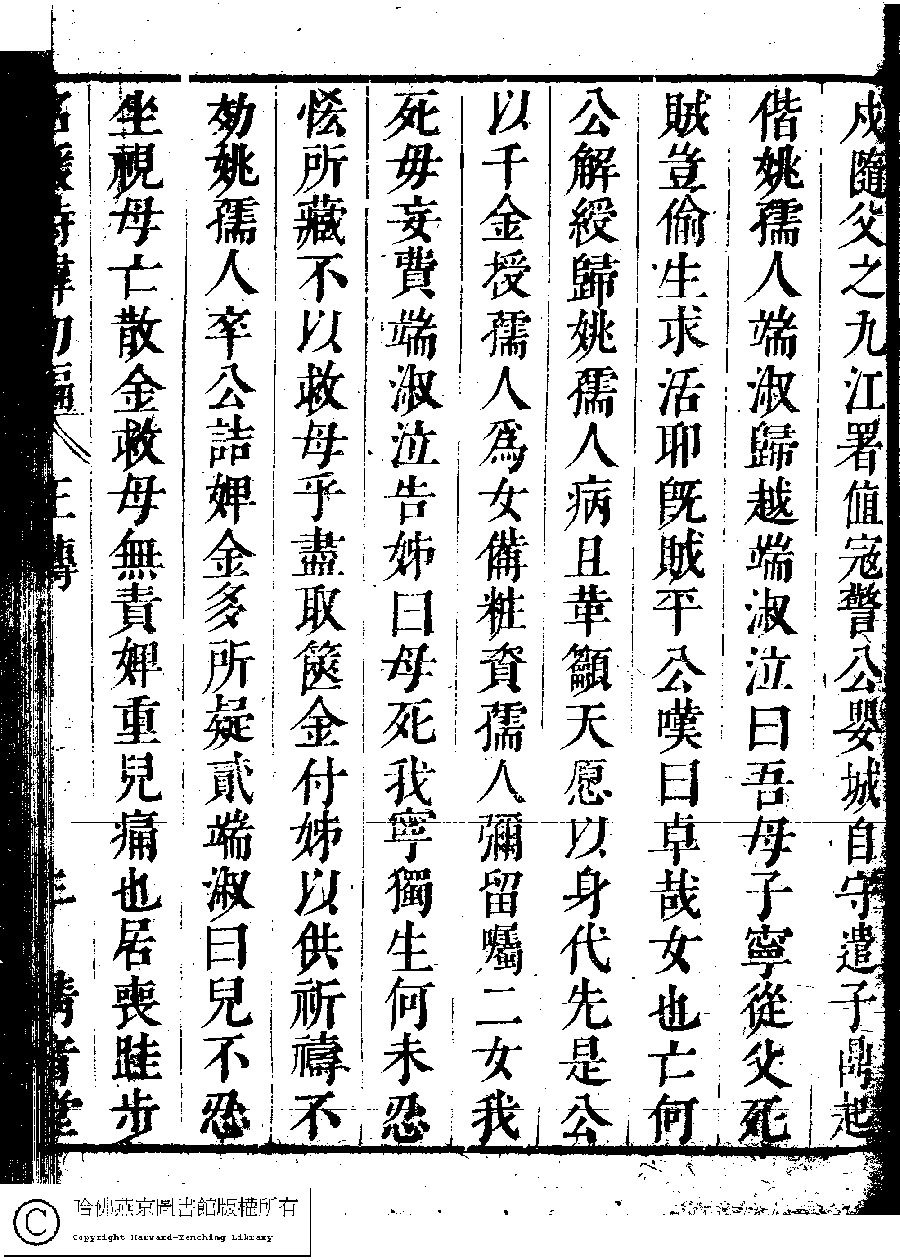 戍隨父之九江署值寇警公嬰城自守遣子啚起
偕姚孺人端淑歸越端淑泣曰吾母子寧從父死
賊豈偷生求活耶旣賊平公嘆曰卓哉女也亡何
公解綬歸姚孺人病且革籲天愿以身代先是公
以千金授孺人爲女備粧資孺人彌留囑二女我
死毋妄費端淑泣告姊曰母死我寧獨生何未忍
恡所藏不以救母乎盡取篋金付姊以供祈禱不
効姚孺人卒公詰婢金多所疑貳端淑曰兒不忍
坐視母亡散金救母無責婢重兒痛也居喪跬步
名媛詩緯初編 王傳 清音堂
哈佛燕京圖書館版權所有
Copyright Harvard-Yenching Library